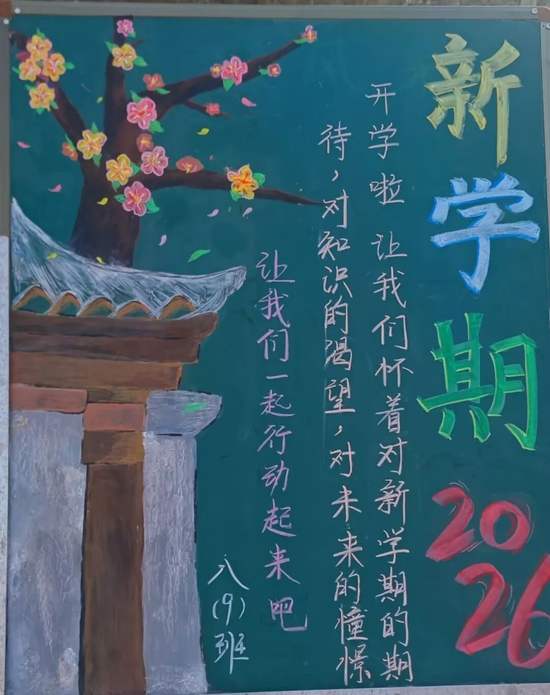 新学期
2026
开学啦 让我们怀着对新学期的期
待，对知识的渴望，对未来的憧憬
让我们一起行动起来吧
八(9)班